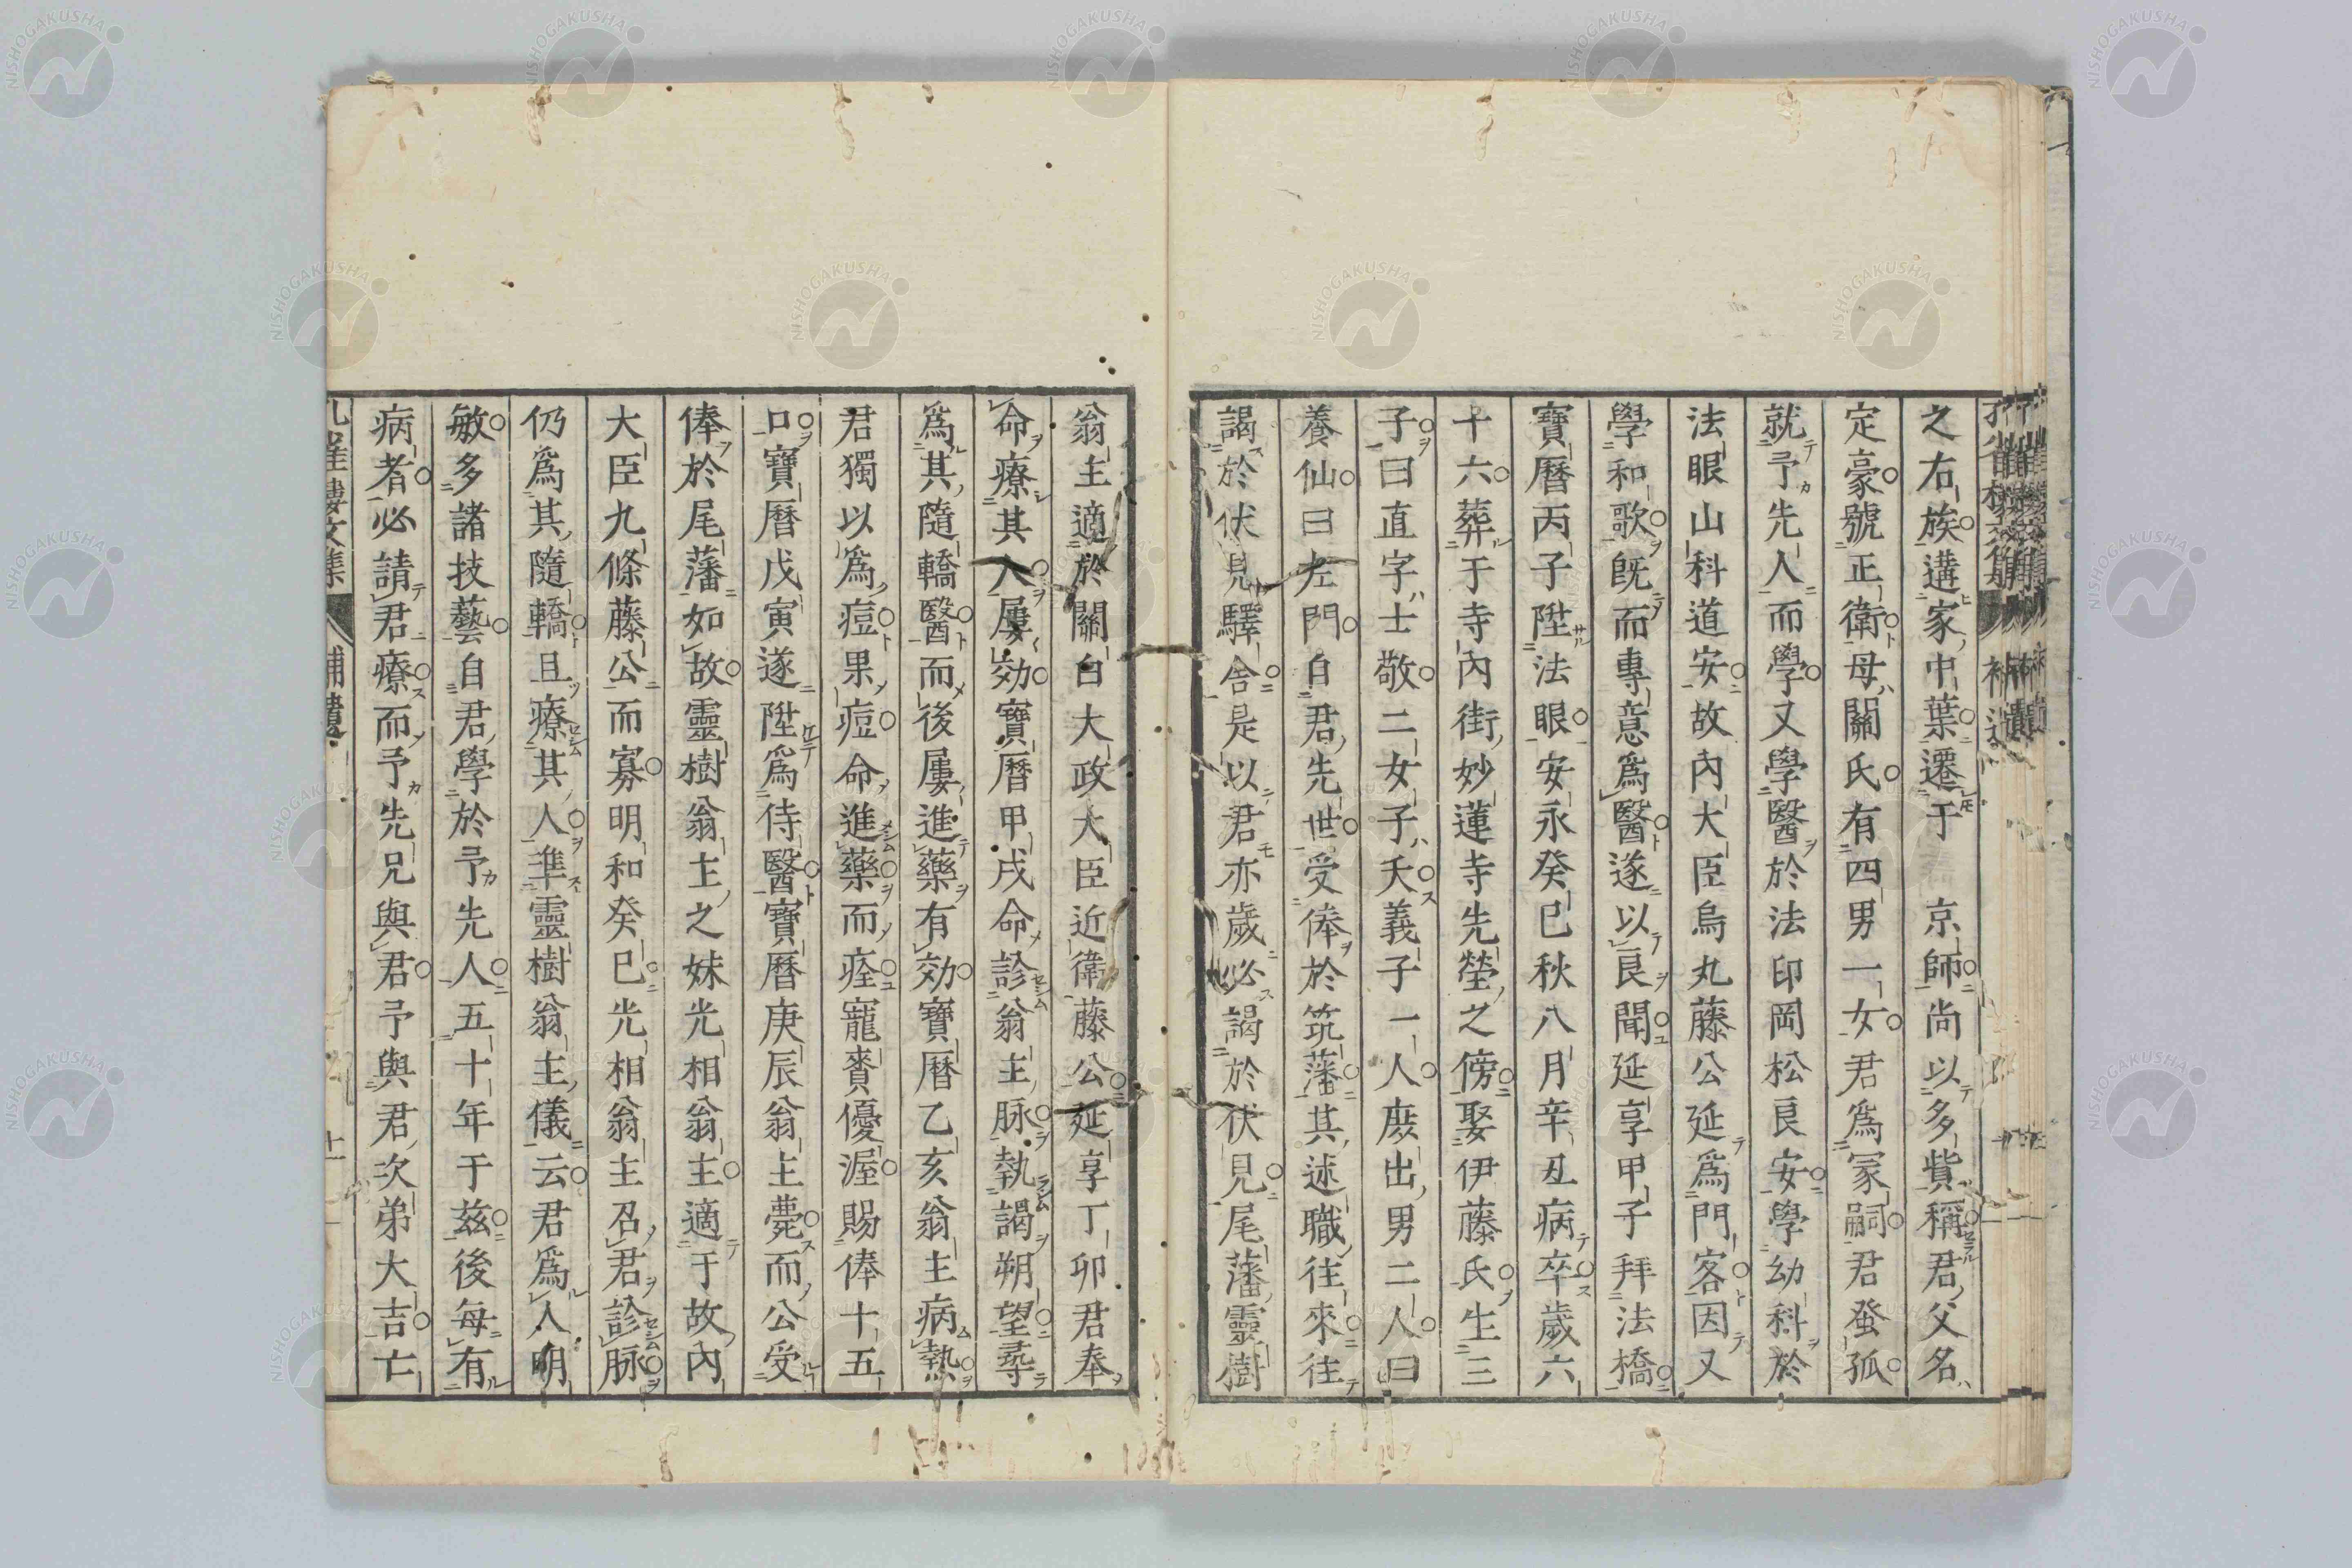 之右族遘家中葉遷于　京師尚以多貲稱君父名
定豪號正衛母關氏有四男一女君爲冢嗣君蚤孤
就予先人而學又學醫於法印岡松良安學幼科於
法眼山科道安故內大臣烏丸藤公延爲門客因又
學和歌既而專意爲醫遂以良聞延享甲子拜法橋
寶曆丙子陞法眼安永癸巳秋八月辛丑病卒歲六
十六葬于寺內街妙蓮寺先塋之傍娶伊藤氏生三
子曰直字士敬二女子夭義子一人庶出男二人曰
養仙曰左門自君先世受俸於筑藩其述職往來往
謁於伏見驛舍是以君亦歲必謁於伏見尾藩靈樹
翁主適於關白大政大臣近衛藤公延享丁卯君奉
命療其人屢効寶曆甲戌命診翁主脉執謁朔望尋
爲其隨轎醫而後屢進藥有効寶曆乙亥翁主病熱
君獨以爲痘果痘命進藥而痊寵賚優渥賜俸十五
口寶曆戊寅遂陞爲侍醫寶曆庚辰翁主薨而公受
俸於尾藩如故靈樹翁主之妹光相翁主適于故內
大臣九條藤公而寡明和癸巳光相翁主召君診脉
仍爲其隨轎且療其人準靈樹翁主儀云君爲人明
敏多諸技藝自君學於予先人五十年于茲後每有
病者必請君療而予先兄與君予與君次弟大吉亡
補遺
NISHOGAKUSHA